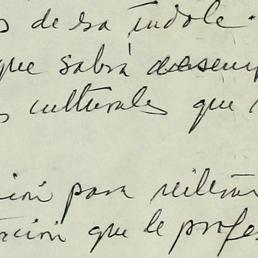 de esa índole.
que sabrá desemp
culturales que
ión para reiterar
tación que le profes